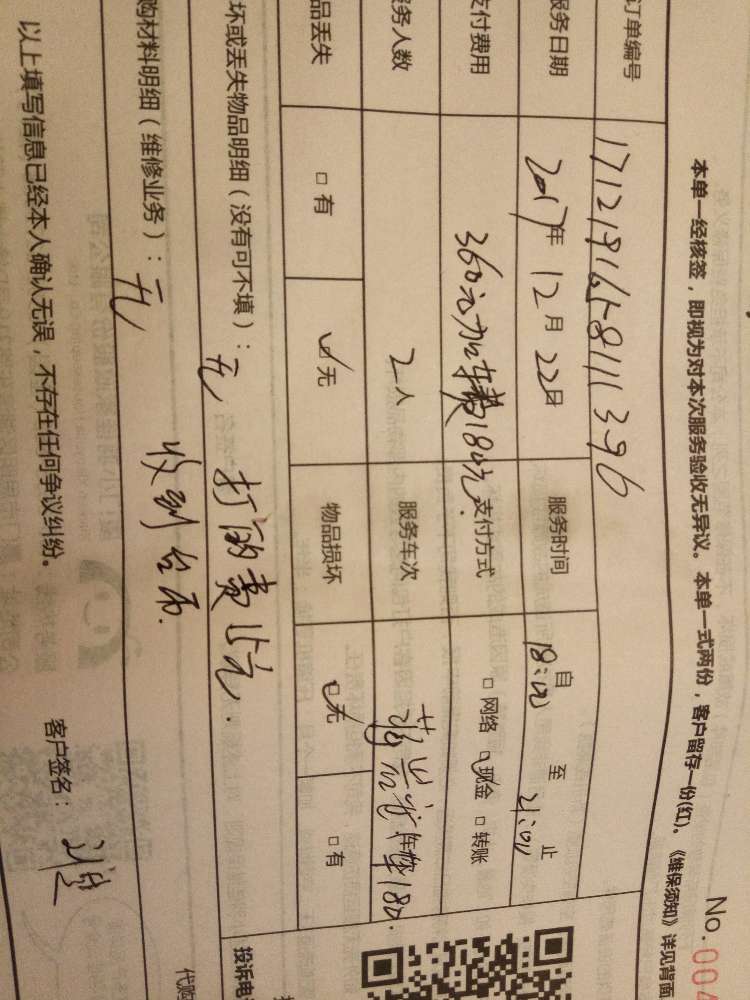 No.004
本单一经核签，即视为对本次服务验收无异议。本单一式两份，客户留存一份(红)。《维保须知》详见背面
订单编号 1712191658111396
服务日期 2017年 12月 22日 服务时间 自 18:00 至 21:00 止
支付费用 360元加车费184元. 支付方式 □ 网络 ☑ 现金 □ 转账
服务人数 2人 服务车次 180.
物品丢失 □ 有 ☑ 无 物品损坏 ☑ 无 □ 有
坏或丢失物品明细（没有可不填）：无 打的费15元.
购材料明细（维修业务）：无 收到 台币.
投诉电
代购
以上填写信息已经本人确认无误，不存在任何争议纠纷。 客户签名：